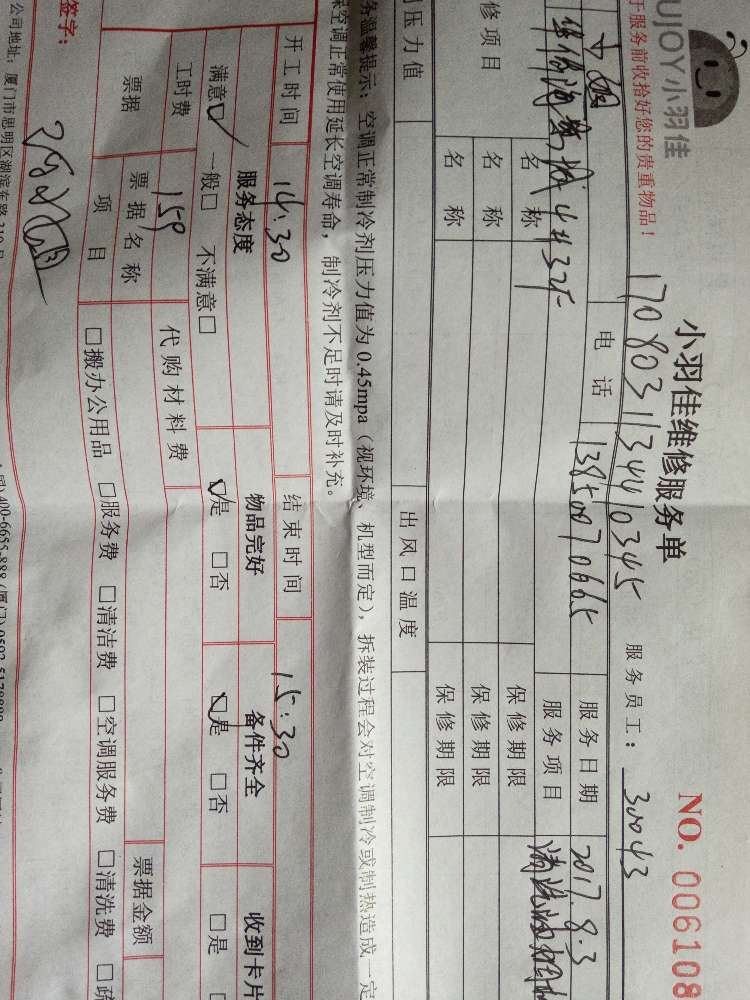 UJOY小羽佳
小羽佳维修服务单
NO. 006108
于服务前收拾好您的贵重物品！
1708031134410345
服务员工：30043
电话
13850070665
服务日期
2017.8.3
服务项目
修项目
名称
保修期限
名称
保修期限
名称
保修期限
压力值
出风口温度
务温馨提示：空调正常制冷剂压力值为0.45mpa（视环境、机型而定），拆装过程会对空调制冷或制热造成一定
空调正常使用延长空调寿命，制冷剂不足时请及时补充。
开工时间
14:30
结束时间
15:30
服务态度
物品完好
备件齐全
收到卡片
满意☑ 一般□ 不满意□
☑是 □否
☑是 □否
□是
工时费
159
代购材料费
票据
票据名称
票据金额
项目
□搬办公用品 □服务费 □清洁费 □空调服务费 □清洗费
签字：
公司地址：厦门市思明区湖滨东路
400-6655-888